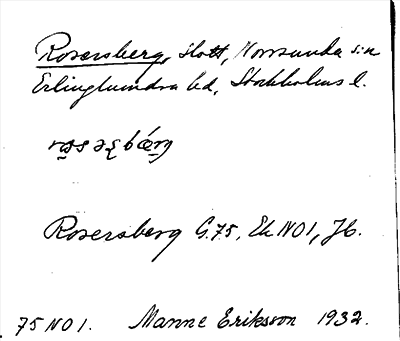 Rosersberg, slott, Norrsunda s:n
Erlinghundra hd, Stockholms l.
Rosersberg G.75, Ek. NO1, Jb.
75 NO 1. Manne Eriksson 1932.